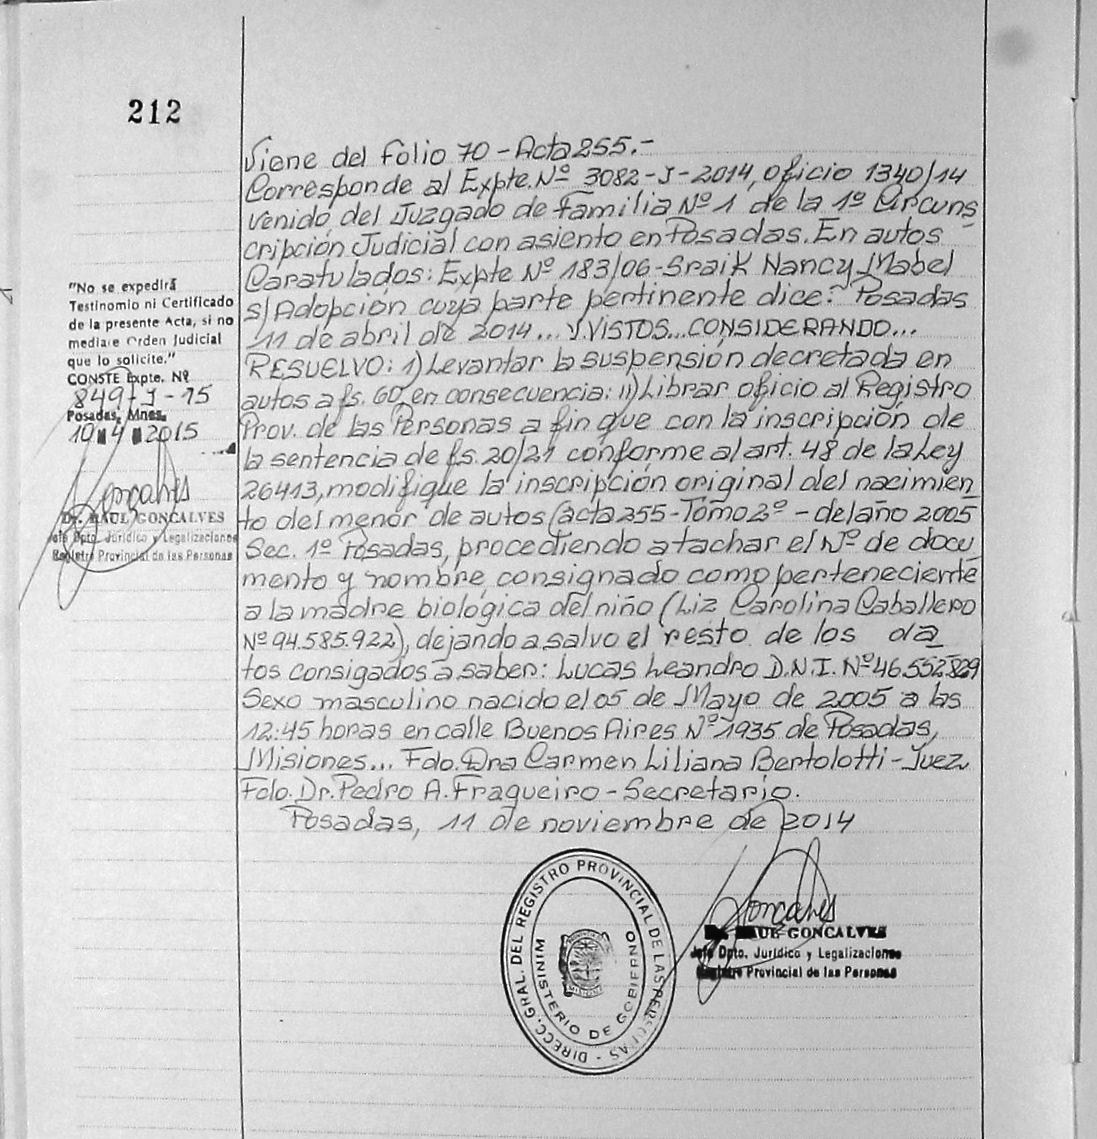 212
Viene del Folio 70 - Acta 255.-
Corresponde al Expte. Nº 3082-J-2014, oficio 1340/14
venido del Juzgado de Familia Nº 1 de la 1º Circuns
cripción Judicial con asiento en Posadas. En autos
Caratulados: Expte Nº 183/06-Sraik Nancy Mabel
s/Adopción cuya parte pertinente dice: "Posadas
11 de abril de 2014... Y VISTOS... CONSIDERANDO...
RESUELVO: 1) Levantar la suspensión decretada en
autos a fs. 60 en consecuencia: 11) Librar oficio al Registro
Prov. de las Personas a fin que con la inscripción de
la sentencia de fs. 20/21 conforme al art. 48 de la Ley
26413, modifique la inscripción original del nacimien
to del menor de autos (acta 255-Tomo 2º - del año 2005
Sec. 1º Posadas, procediendo a tachar el Nº de docu
mento y nombre, consignado como perteneciente
a la madre biológica del niño (Liz Carolina Caballero
Nº 94.585.922), dejando a salvo el resto de los da
tos consigados a saber: Lucas Leandro D.N.I. Nº 46.552.829
Sexo masculino nacido el 05 de Mayo de 2005 a las
12:45 horas en calle Buenos Aires Nº 1935 de Posadas,
Misiones... Fdo. Dra Carmen Liliana Bertolotti - Juez
Fdo. Dr. Pedro A. Fragueiro - Secretario.
Posadas, 11 de noviembre de 2014
"No se expedirá
Testimonio ni Certificado
de la presente Acta, si no
mediare Orden Judicial
que lo solicite."
CONSTE Expte. Nº
849-J-15
Posadas, Mnes.
10 4 2015
Goncalves
Dr. RAUL GONCALVES
Jefe Dpto. Jurídico y Legalizaciones
Registro Provincial de las Personas
DIRECC. GRAL. DEL REGISTRO PROVINCIAL DE LAS PERSONAS
MINISTERIO DE GOBIERNO
MISIONES
Goncalves
Dr. RAUL GONCALVES
Jefe Dpto. Jurídico y Legalizaciones
Registro Provincial de las Personas